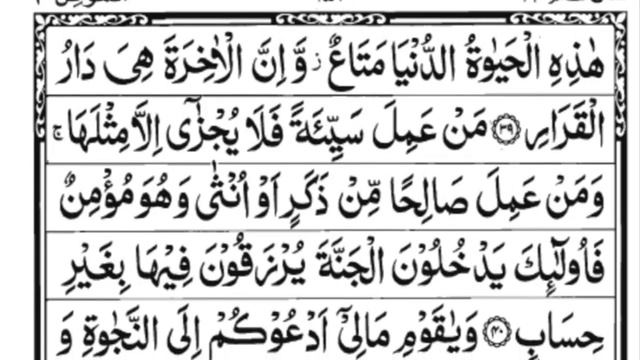 هٰذِهِ الْحَيٰوةُ الدُّنْيَا مَتَاعٌ ز وَّاِنَّ الْاٰخِرَةَ هِىَ دَارُ
الْقَرَارِ ۝٣٩ مَنْ عَمِلَ سَيِّئَةً فَلَا يُجْزٰٓى اِلَّا مِثْلَهَا ج
وَمَنْ عَمِلَ صَالِحًا مِّنْ ذَكَرٍ اَوْ اُنْثٰى وَهُوَ مُؤْمِنٌ
فَاُولٰٓئِكَ يَدْخُلُوْنَ الْجَنَّةَ يُرْزَقُوْنَ فِيْهَا بِغَيْرِ
حِسَابٍ ۝٤٠ وَيٰقَوْمِ مَالِىْٓ اَدْعُوْكُمْ اِلَى النَّجٰوةِ وَ